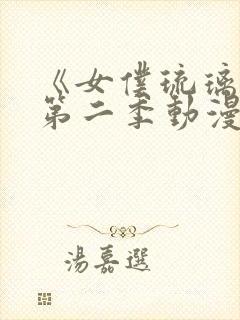 《女僕琉璃
第二季動漫
湯嘉選